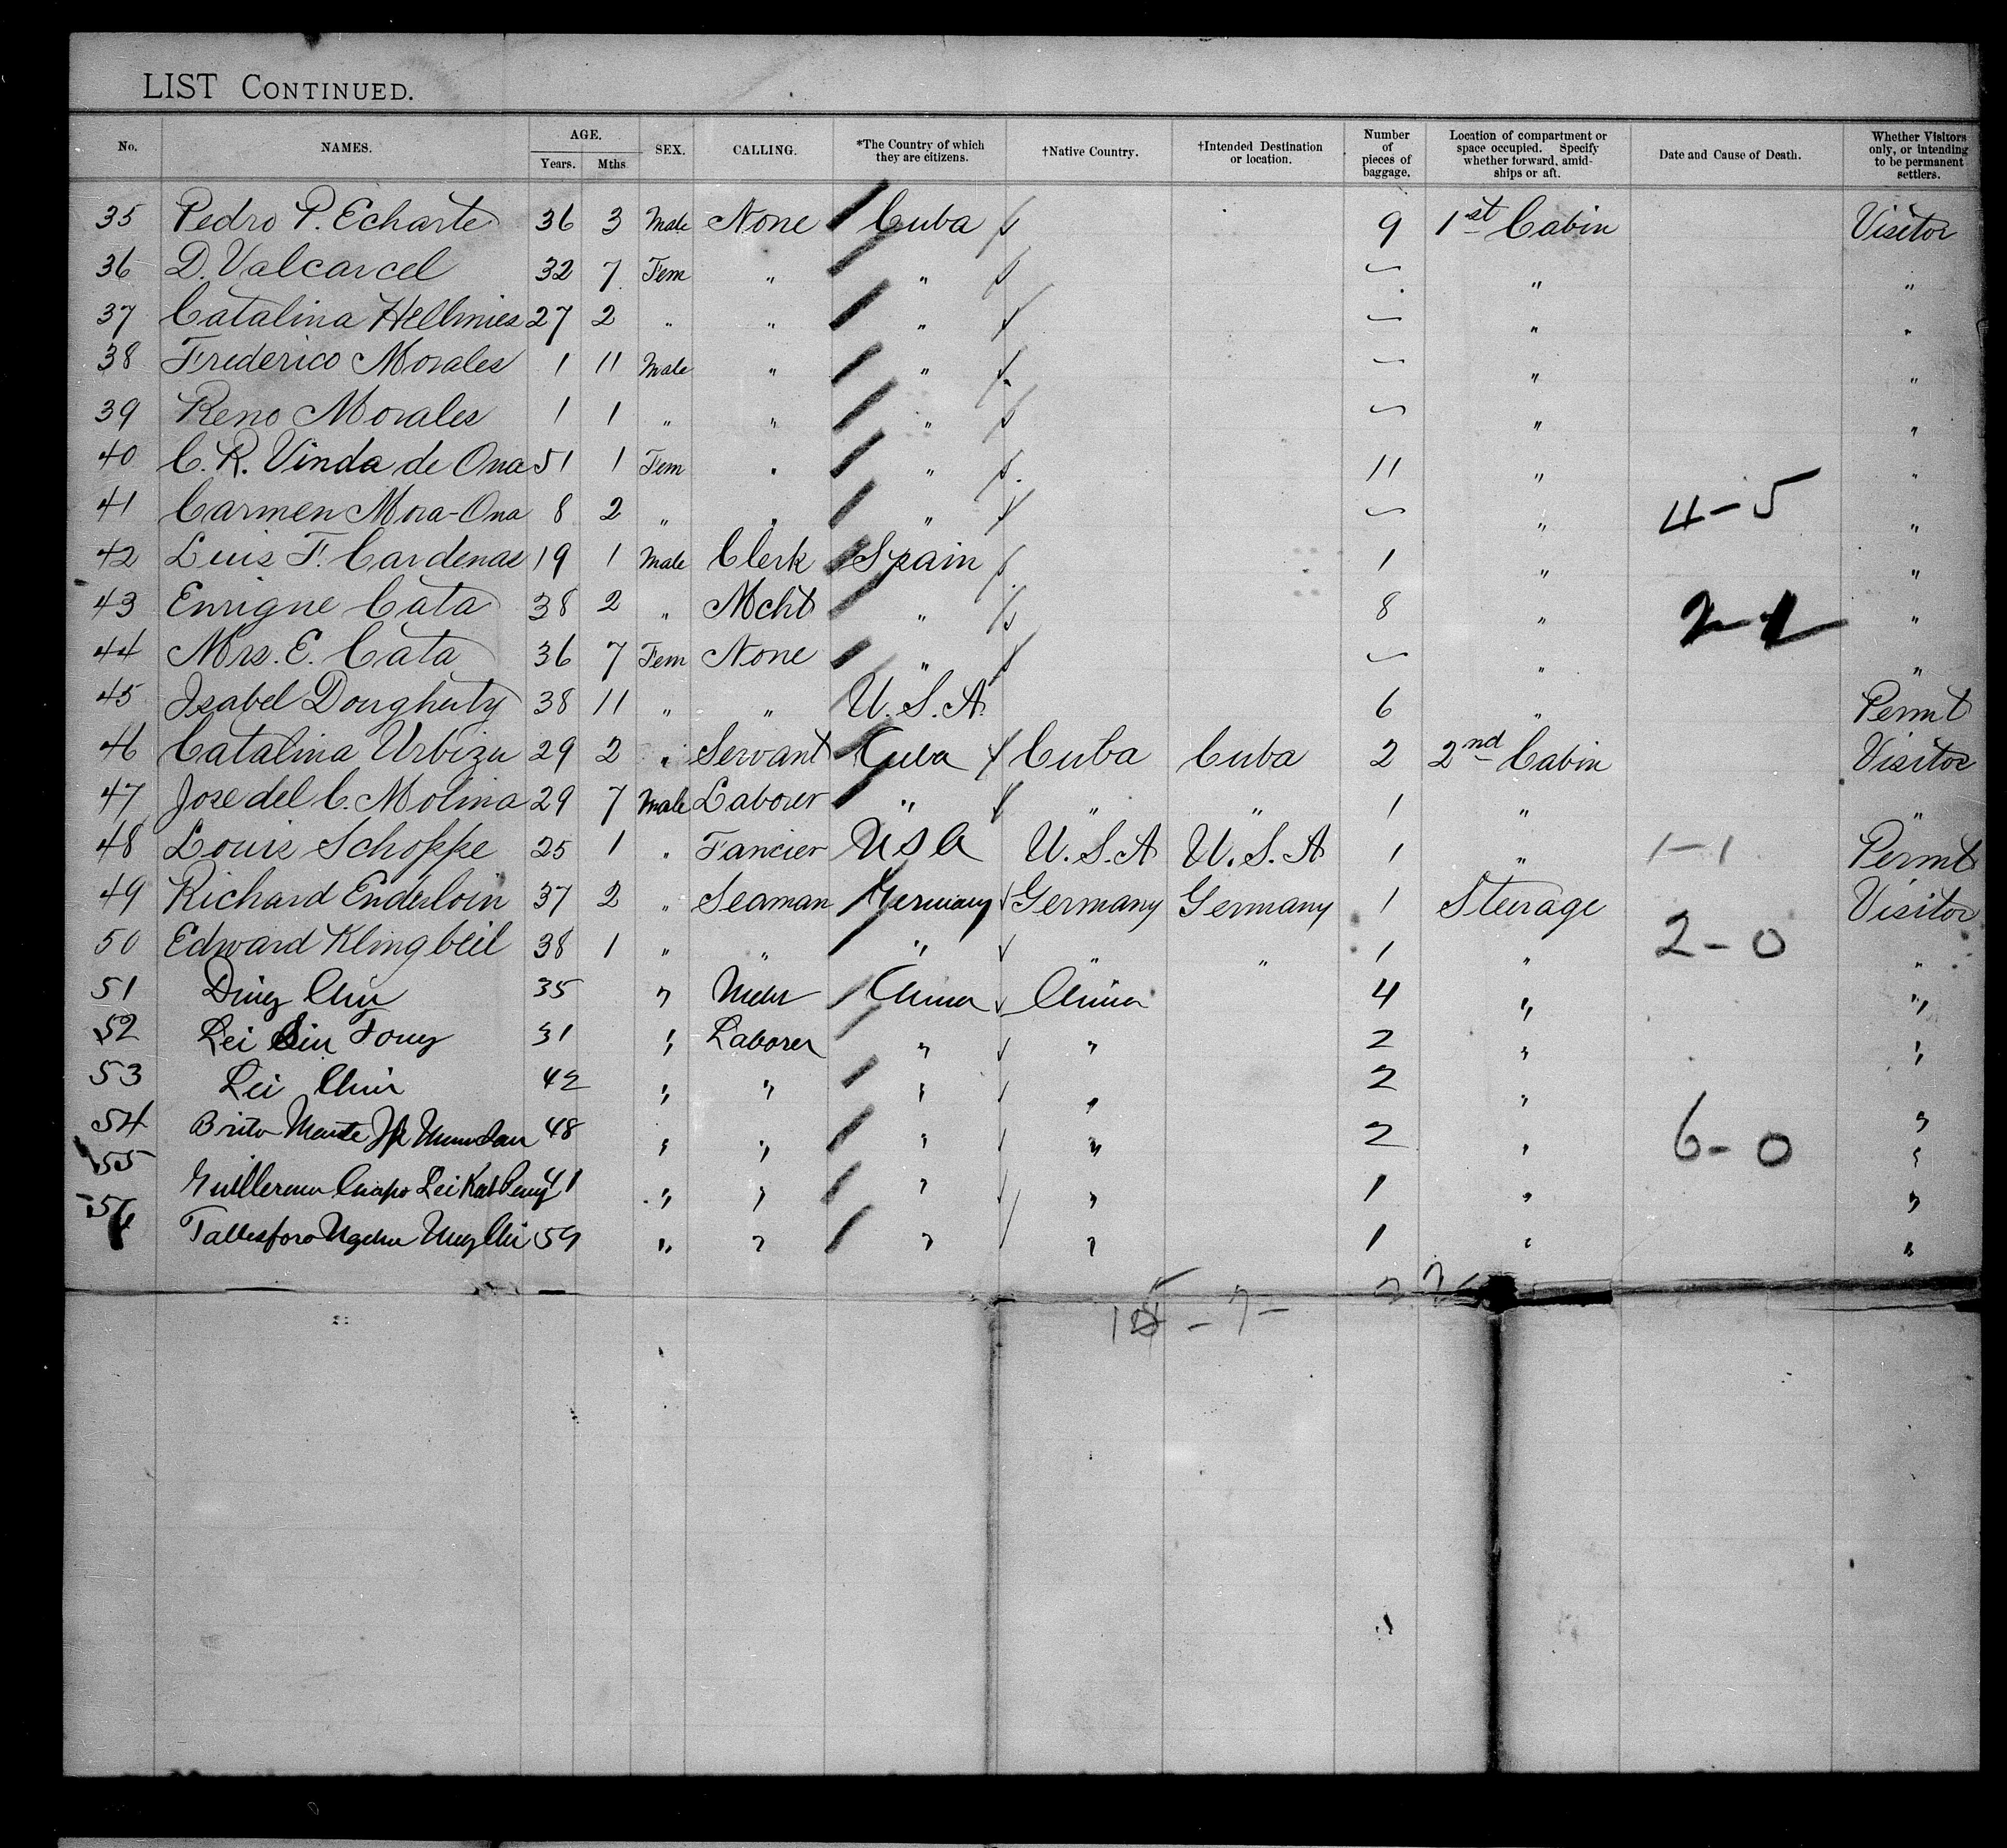 LIST CONTINUED.
No. NAMES. AGE. Years. Mths. SEX. CALLING. *The Country of which they are citizens. †Native Country. †Intended Destination or location. Number of pieces of baggage. Location of compartment or space occupied. Specify whether forward, amidships or aft. Date and Cause of Death. Whether Visitors only, or intending to be permanent settlers.
35 Pedro P. Echarte 36 3 Male None Cuba 9 1st Cabin Visitor
36 D. Valcarcel 32 7 Fem " " — " "
37 Catalina Hellmies 27 2 " " " — " "
38 Frederico Morales 1 11 Male " " — " "
39 Reno Morales 1 1 " " " — " "
40 C. R. Vinda de Ona 51 1 Fem " " 11 " "
41 Carmen Mora-Ona 8 2 " " " — " 4-5 "
42 Luis F. Cardenas 19 1 Male Clerk Spain 1 " "
43 Enrigne Cata 38 2 " Mcht " 8 " "
44 Mrs. E. Cata 36 7 Fem None " — " "
45 Isabel Dougherty 38 11 " " U.S.A. 6 " Permt
46 Catalina Urbizu 29 2 " Servant Cuba Cuba Cuba 2 2nd Cabin Visitor
47 Jose del C. Molina 29 7 Male Laborer " " " 1 " "
48 Louis Schoppe 25 1 " Fancier USA U.S.A U.S.A 1 " 1-1 Permt
49 Richard Enderloin 37 2 " Seaman Germany Germany Germany 1 Steerage Visitor
50 Edward Klingbeil 38 1 " " " " " 1 " 2-0 "
51 Ding 35 " China China 4 " "
52 Lei 31 " Laborer " " 2 " "
53 Lei 42 " " " " 2 " "
54 Brito 48 " " " " 2 " 6-0 "
55 Lei 41 " " " " 1 " "
56 59 " " " " 1 " "